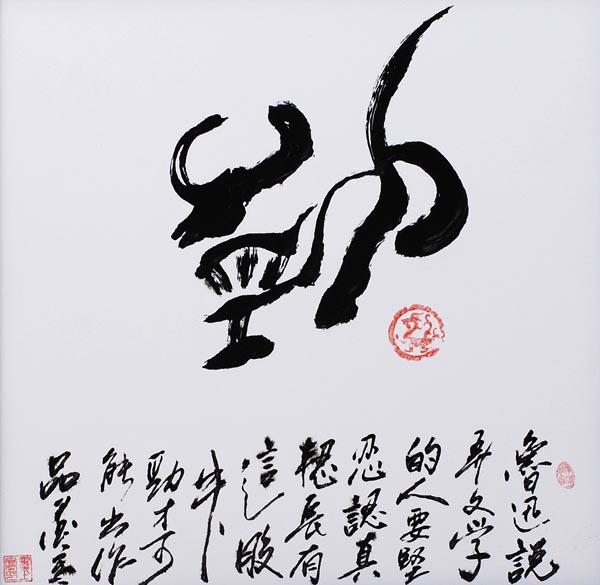 牛勁
魯迅說
弄文学
的人要堅
忍認真
韌長有
這股
牛
勁才可
能出作
品